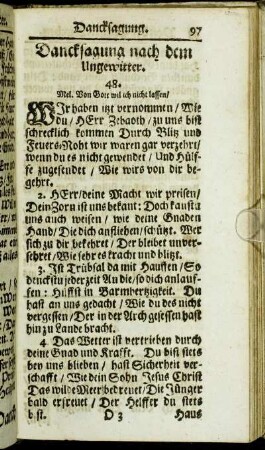 Dancksagung. 97
Dancksagung nach dem
Ungewitter.
48.
Mel. Von Gott wil ich nicht lassen/
WIr haben itzt vernommen/ Wie
du/ HErr Zebaoth/ zu uns bist
schrecklich kommen Durch Blitz und
Feuers-Noht wir waren gar verzehrt/
wenn du es nicht gewendet/ Und Hülf-
fe zugesendet/ Wie wirs von dir be-
gehrt.
2. HErr/ deine Macht wir preisen/
Dein Zorn ist uns bekant: Doch kanstu
uns auch weisen/ wie deine Gnaden
Hand/ Die dich anfliehen/ schützt. Wer
sich zu dir bekehret/ Der bleibet unver-
sehret/ Wie sehr es kracht und blitzt.
3. Ist Trübsal da mit Hauffen/ So
denckstu jederzeit An die/ so dich anlauf-
fen: Hülffst in Barmhertzigkeit. Du
hast an uns gedacht/ Wie du des nicht
vergessen/ Der in der Arch gesessen hast
hin zu Lande bracht.
4 Das Wetter ist vertrieben durch
deine Gnad und Krafft. Du bist stets
bey uns blieben/ hast Sicherheit ver-
schafft/ Wie dein Sohn Jesus Christ
Das wilde Meer bedreuet/ Die Jünger
bald erfreuet/ Der Helffer du stets
bist. D 3 Haus